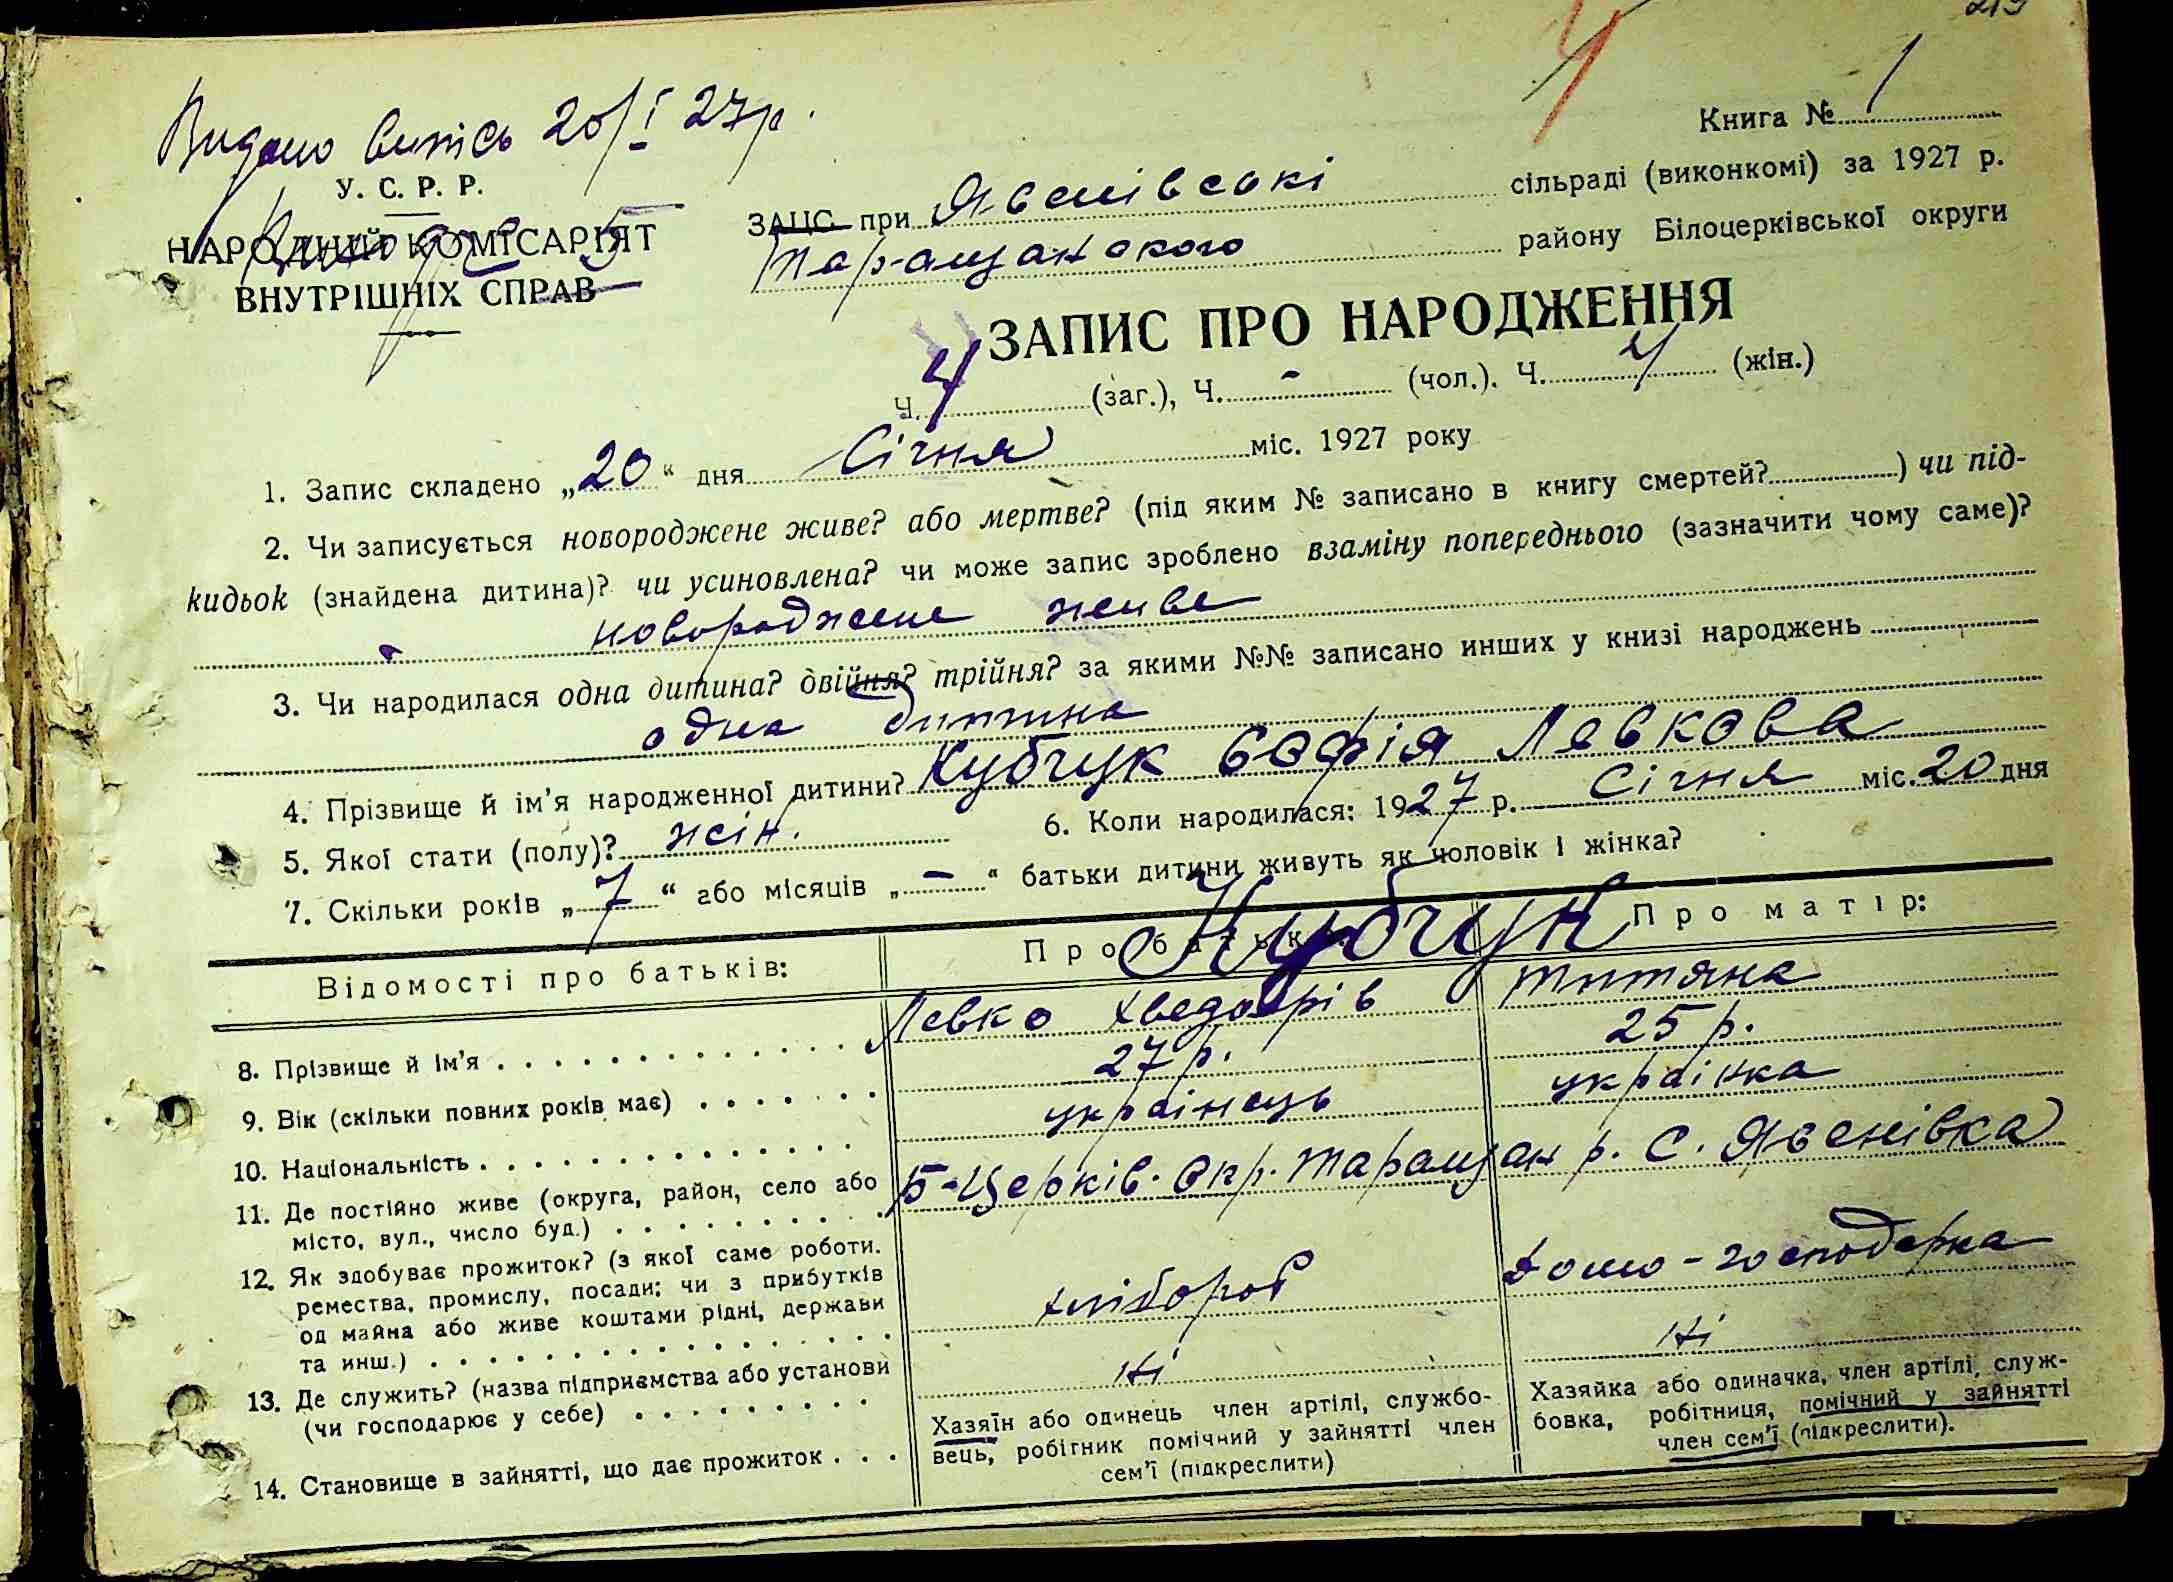 219
4
Видано витісь 20/I 27р.
Книга № 1
У. С. Р. Р.
НАРОДНІЙ КОМІСАРІЯТ
ВНУТРІШНІХ СПРАВ
ЗАЦС при Лісенівські сільраді (виконкомі) за 1927 р.
Таращанского району Білоцерківської округи
ЗАПИС ПРО НАРОДЖЕННЯ
Ч. 4 (заг.), Ч. - (чол.). Ч. 4 (жін.)
1. Запис складено „20“ дня Січня міс. 1927 року
2. Чи записується новороджене живе? або мертве? (під яким № записано в книгу смертей? ) чи під-
кидьок (знайдена дитина)? чи усиновлена? чи може запис зроблено взаміну попереднього (зазначити чому саме)?
новороджене живе
3. Чи народилася одна дитина? двійня? трійня? за якими №№ записано инших у книзі народжень
одна дитина
4. Прізвище й ім’я народженної дитини? Кубчук Софія Левкова
5. Якої стати (полу)? жін. 6. Коли народилася: 1927 р. Січня міс. 20 дня
7. Скільки років „7“ або місяців „-“ батьки дитини живуть як чоловік і жінка?
Відомості про батьків: Про батька: Про матір:
Кубчук
8. Прізвище й ім’я Левко Хведорів Титяна
9. Вік (скільки повних років має) 27 р. 25 р.
10. Національність українець українка
11. Де постійно живе (округа, район, село або
місто, вул., число буд.) Б-Церків. Окр. Таращан р. С.
12. Як здобуває прожиток? (з якої саме роботи.
ремества, промислу, посади; чи з прибутків
од майна або живе коштами рідні, держави
та инш.) хлібороб домо-господарка
13. Де служить? (назва підприємства або установи
(чи господарює у себе) ні ні
14. Становище в зайнятті, що дає прожиток
Хазяїн або одинець член артілі, службо-
вець, робітник помічний у зайнятті член
сем’ї (підкреслити)
Хазяйка або одиначка, член артілі, служ-
бовка, робітниця, помічний у зайнятті
член сем’ї (підкреслити).